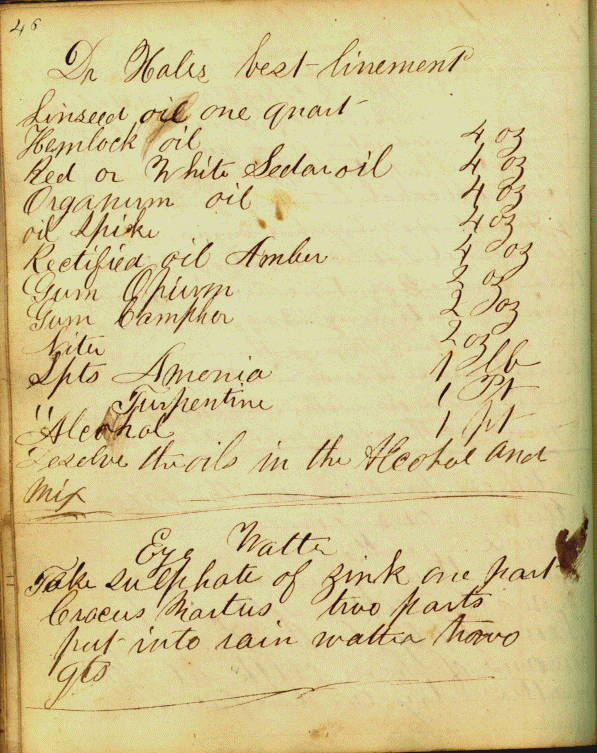 46
Dr Hales best linement
Linseed oil one quart
Hemlock oil 4 oz
Red or White Sedar oil 4 oz
Organum oil 4 oz
oil Spike 4 oz
Rectified oil Amber 4 oz
Gum Opium 2 oz
Gum Campher 2 oz
Niter 2 oz
Spts Amonia 1 lb
" Turpentine 1 Pt
Alcohol 1 pt
Desolve the oils in the Alcohol and
Mix
Eye Watter
Take sulphate of zink one part
Crocus Martus two parts
put into rain watter
qts